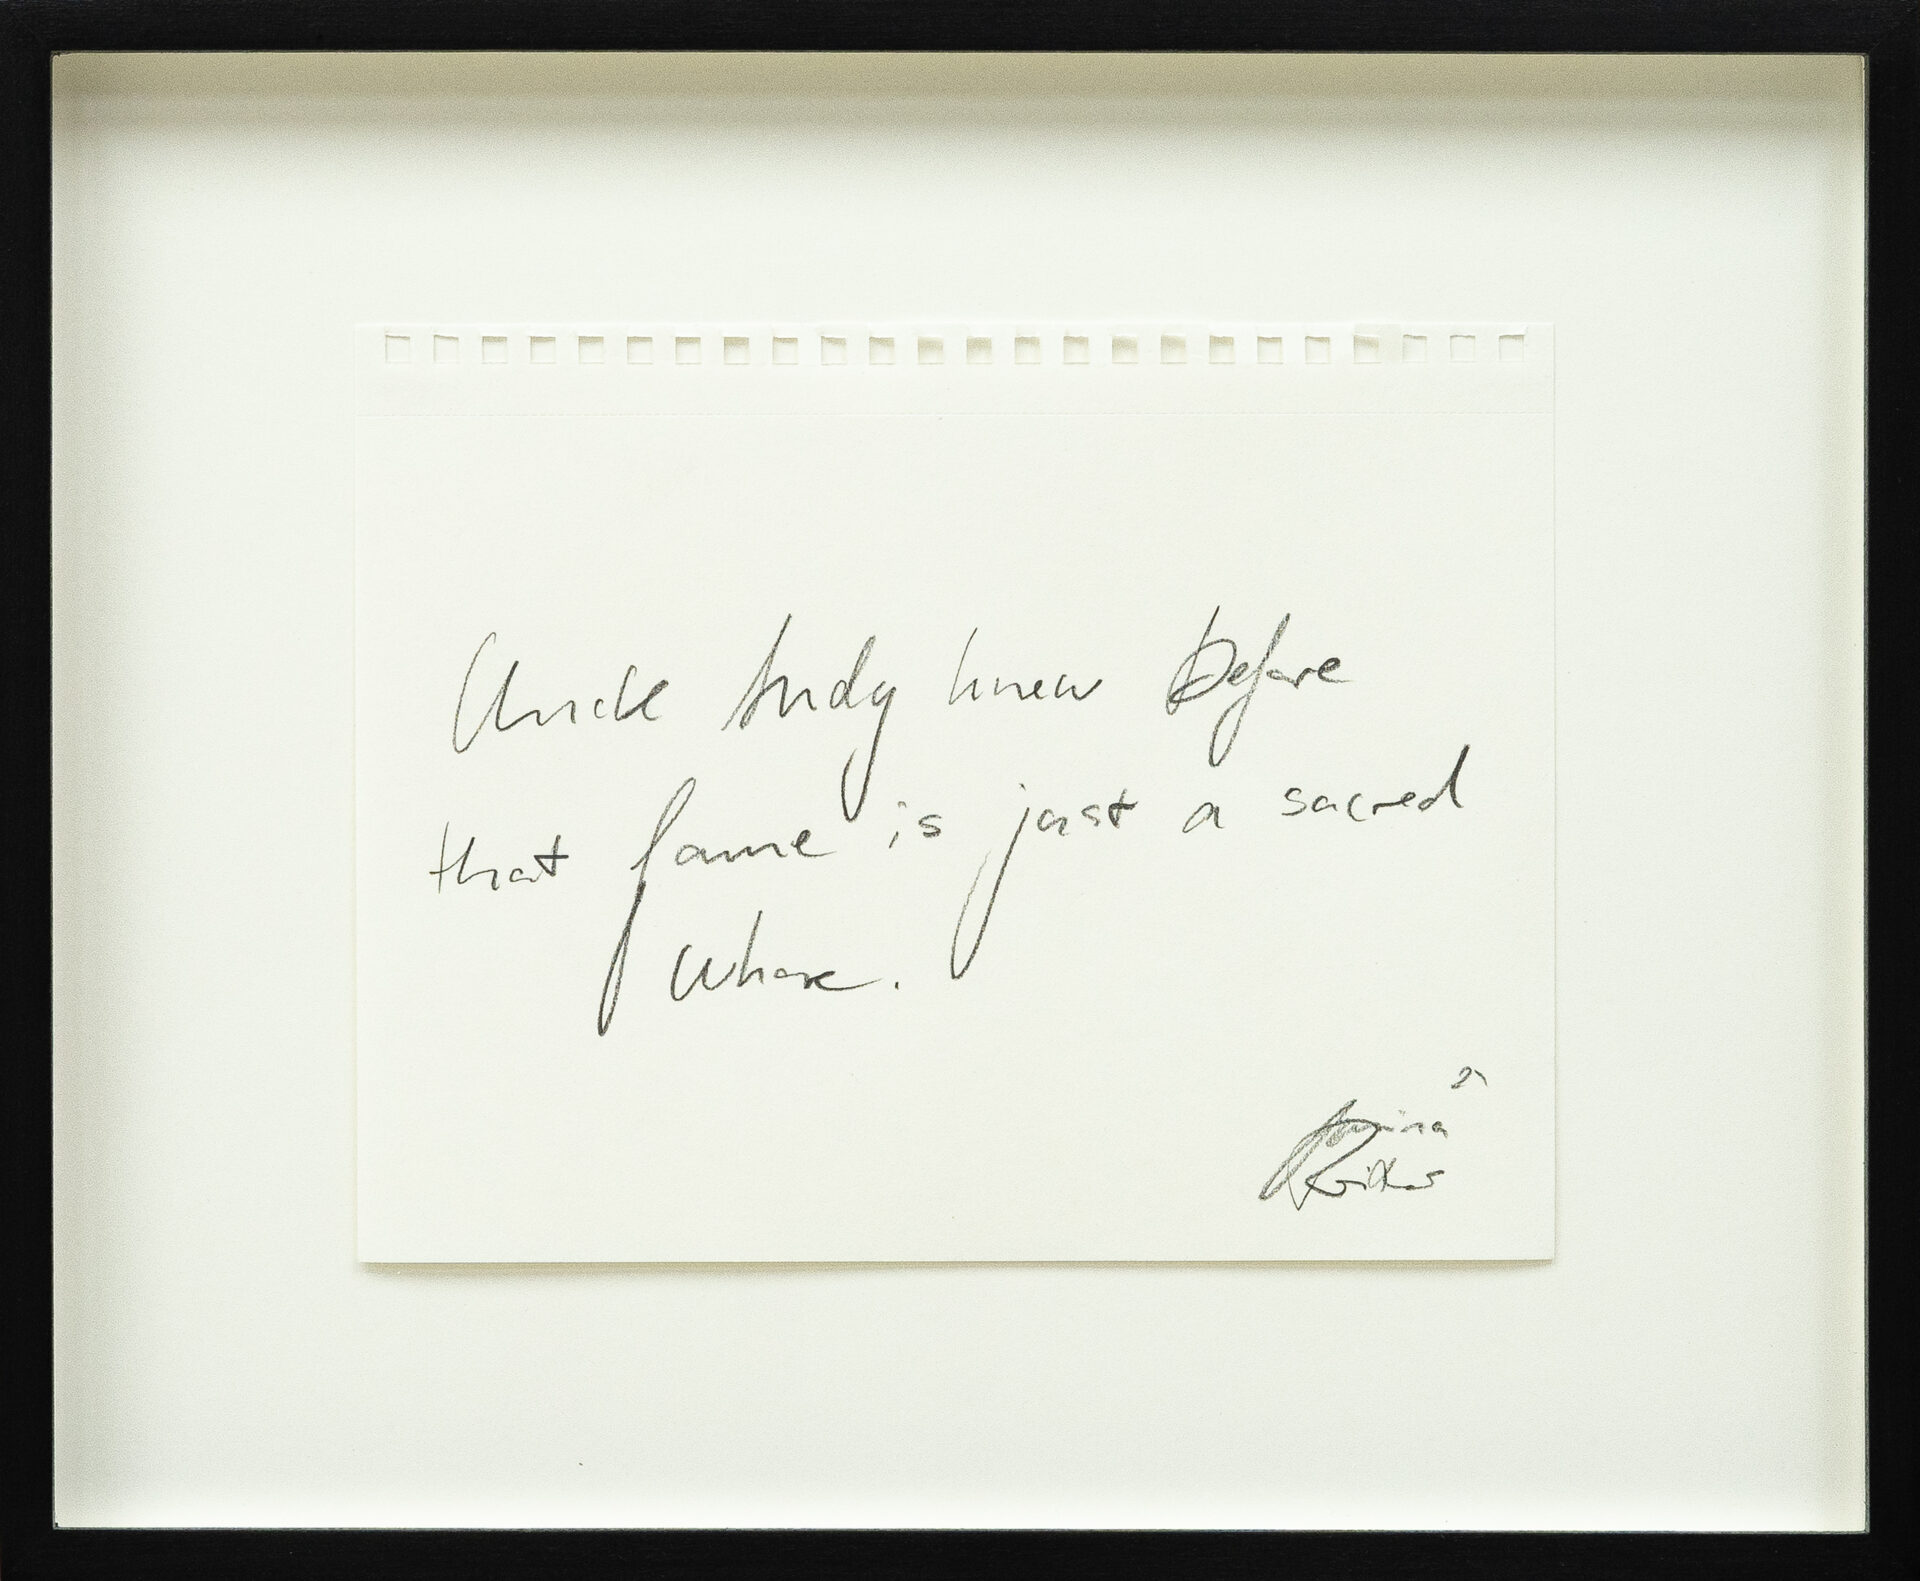 Uncle Andy knew before
that fame is just a sacred
whore.
21